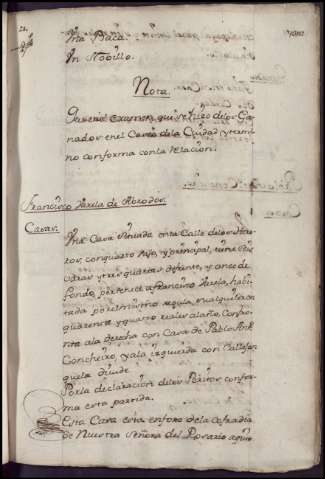 Una Baca.
Un Nobillo.
Nota.
Que en el Examen, que se hizo de los Ga-
nados en el Casco de la Ciudad y termi-
no conforma con la relacion.
Francisco Varela de Albrodos.
Casas.
Una Casa situada en la Calle de los Hue-
tos, con quarto bajo, y principal, tiene
varas y tres quartas de frente, y once de
fondo, pertenece a Francisco Varela, habi-
tada por el mismo, regula en alquilarla
quarenta y quatro reales al año, Confron-
ta a la derecha con Casa de Pablo
y a la izquierda con Callejon
que la divide
Por la declaracion de los Peritos confor-
ma esta partida.
Esta Casa esta en foro de la Cofradia
de Nuestra Señora del Rosario a quien